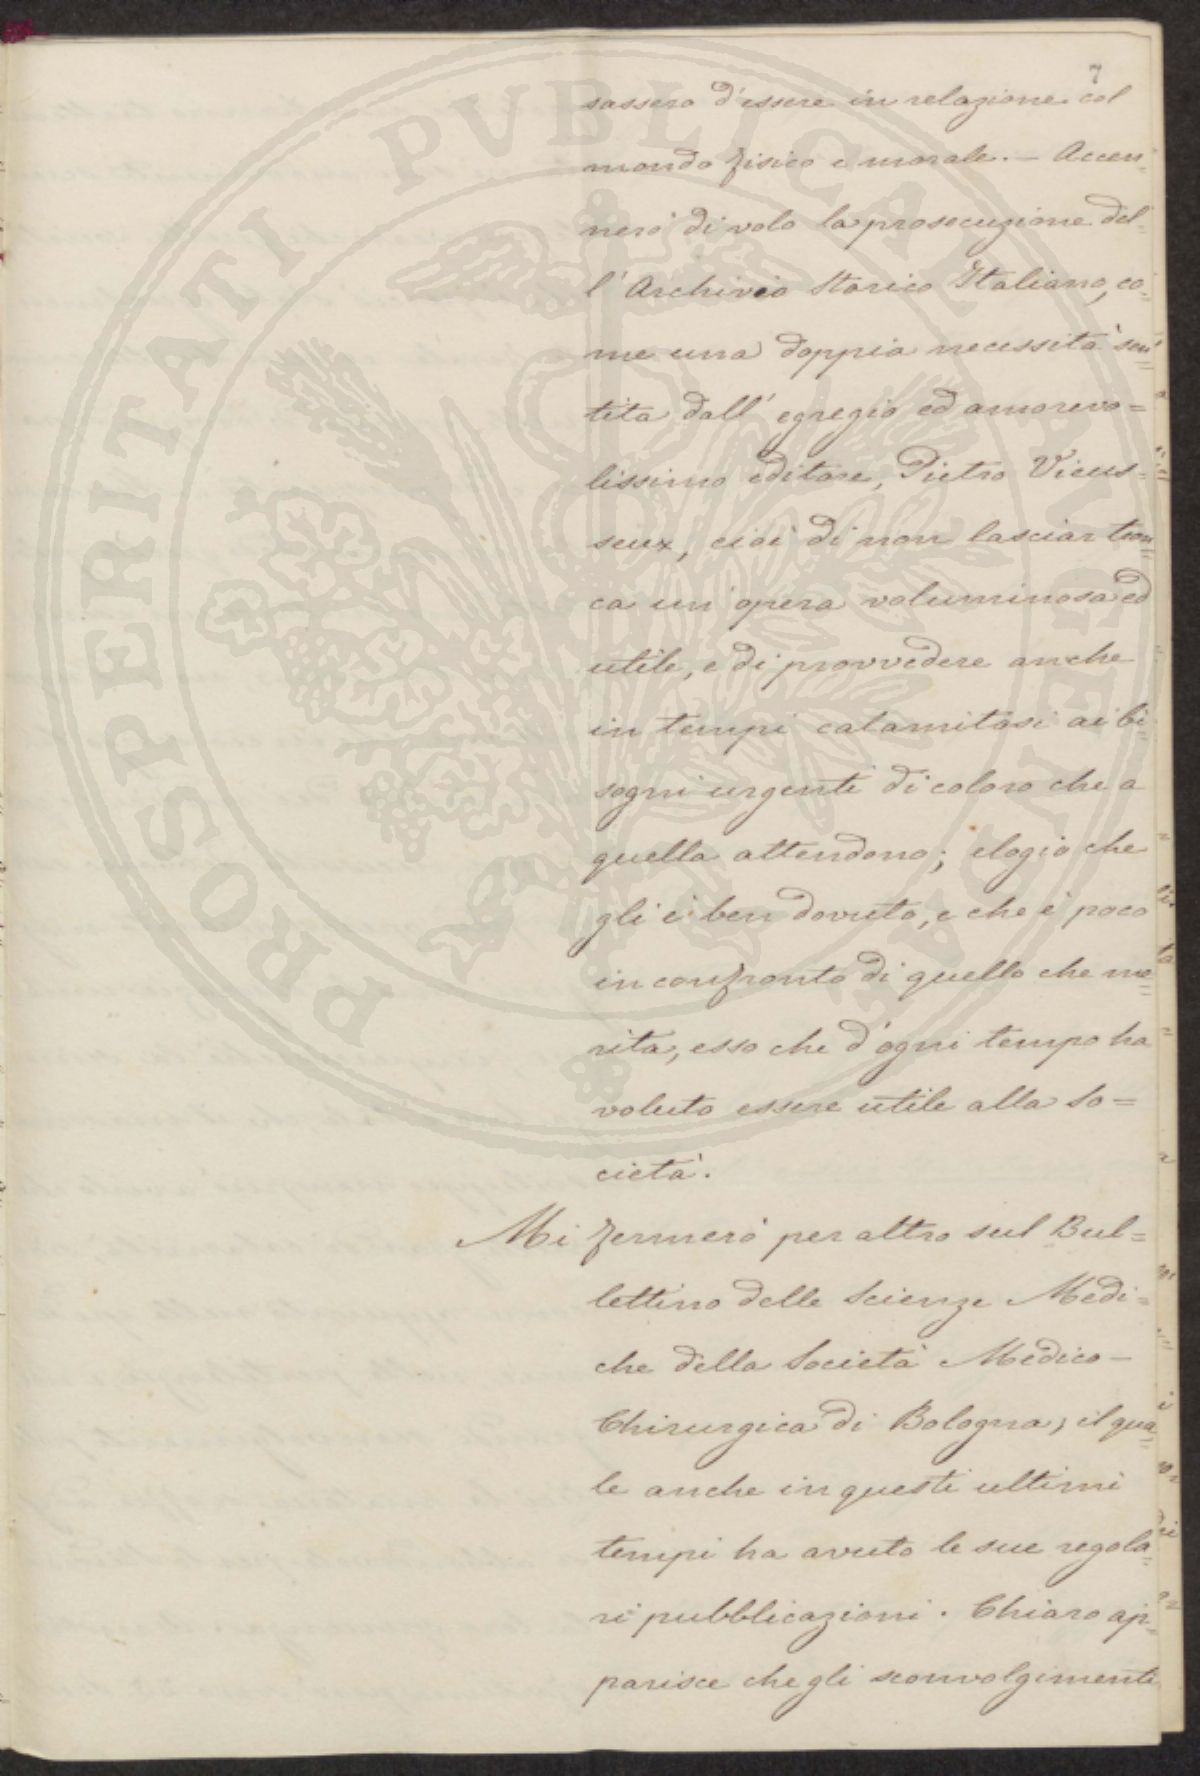 7
sassero d'essere in relazione col
mondo fisico e morale. — Accen-
nerò di volo la prosecuzione del-
l'Archivio Storico Italiano, co-
me una doppia necessità sen=
tita dall'egregio ed amorevo=
lissimo editore, Pietro Vieus-
seux, cioè di non lasciar tron=
ca un'opera voluminosa ed
utile, e di provvedere anche
in tempi calamitosi ai bi-
sogni urgenti di coloro che a
quella attendono; elogio che
gli è ben dovuto, e che è poco
in confronto di quello che me=
rita, esso che d'ogni tempo ha
voluto essere utile alla So=
cietà.
Mi fermerò per altro sul Bul=
lettino delle Scienze Medi=
che della Società Medico-
Chirurgica di Bologna, il qua=
le anche in questi ultimi
tempi ha avuto le sue regola=
ri pubblicazioni. Chiaro ap=
parisce che gli sconvolgimenti
PROSPERITATI PUBLICAE AUGENDAE